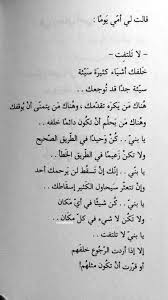 قالت لي أمّي يومًا :
- لا تلتفت -
خلفك أشياء كثيرة سيّئة
سيئة جدًا قد توجعك . .
هناك من يكره تقدمك ، وهناك من يتمنى أن يوقفك
وهناك من يحلم أن تكون دائمًا خلفه . .
يا بنيّ . . كن وحيدًا في الطريق الصحيح
ولا تكن زعيمًا في الطريق الخطأ . .
يا بنيّ . . إنك إن تسقط لن يرحمك أحد
وإن تتعثر سيحاول الكثير إسقاطك . .
يا بنيّ . . كن شيئًا في أي مكان
ولا تكن لا شيء في كل مكان . .
يا بنيّ لا تلتفت . .
إلا إذا أردت الرجوع خلفهم
أو قررت أن تكون مثلهم!